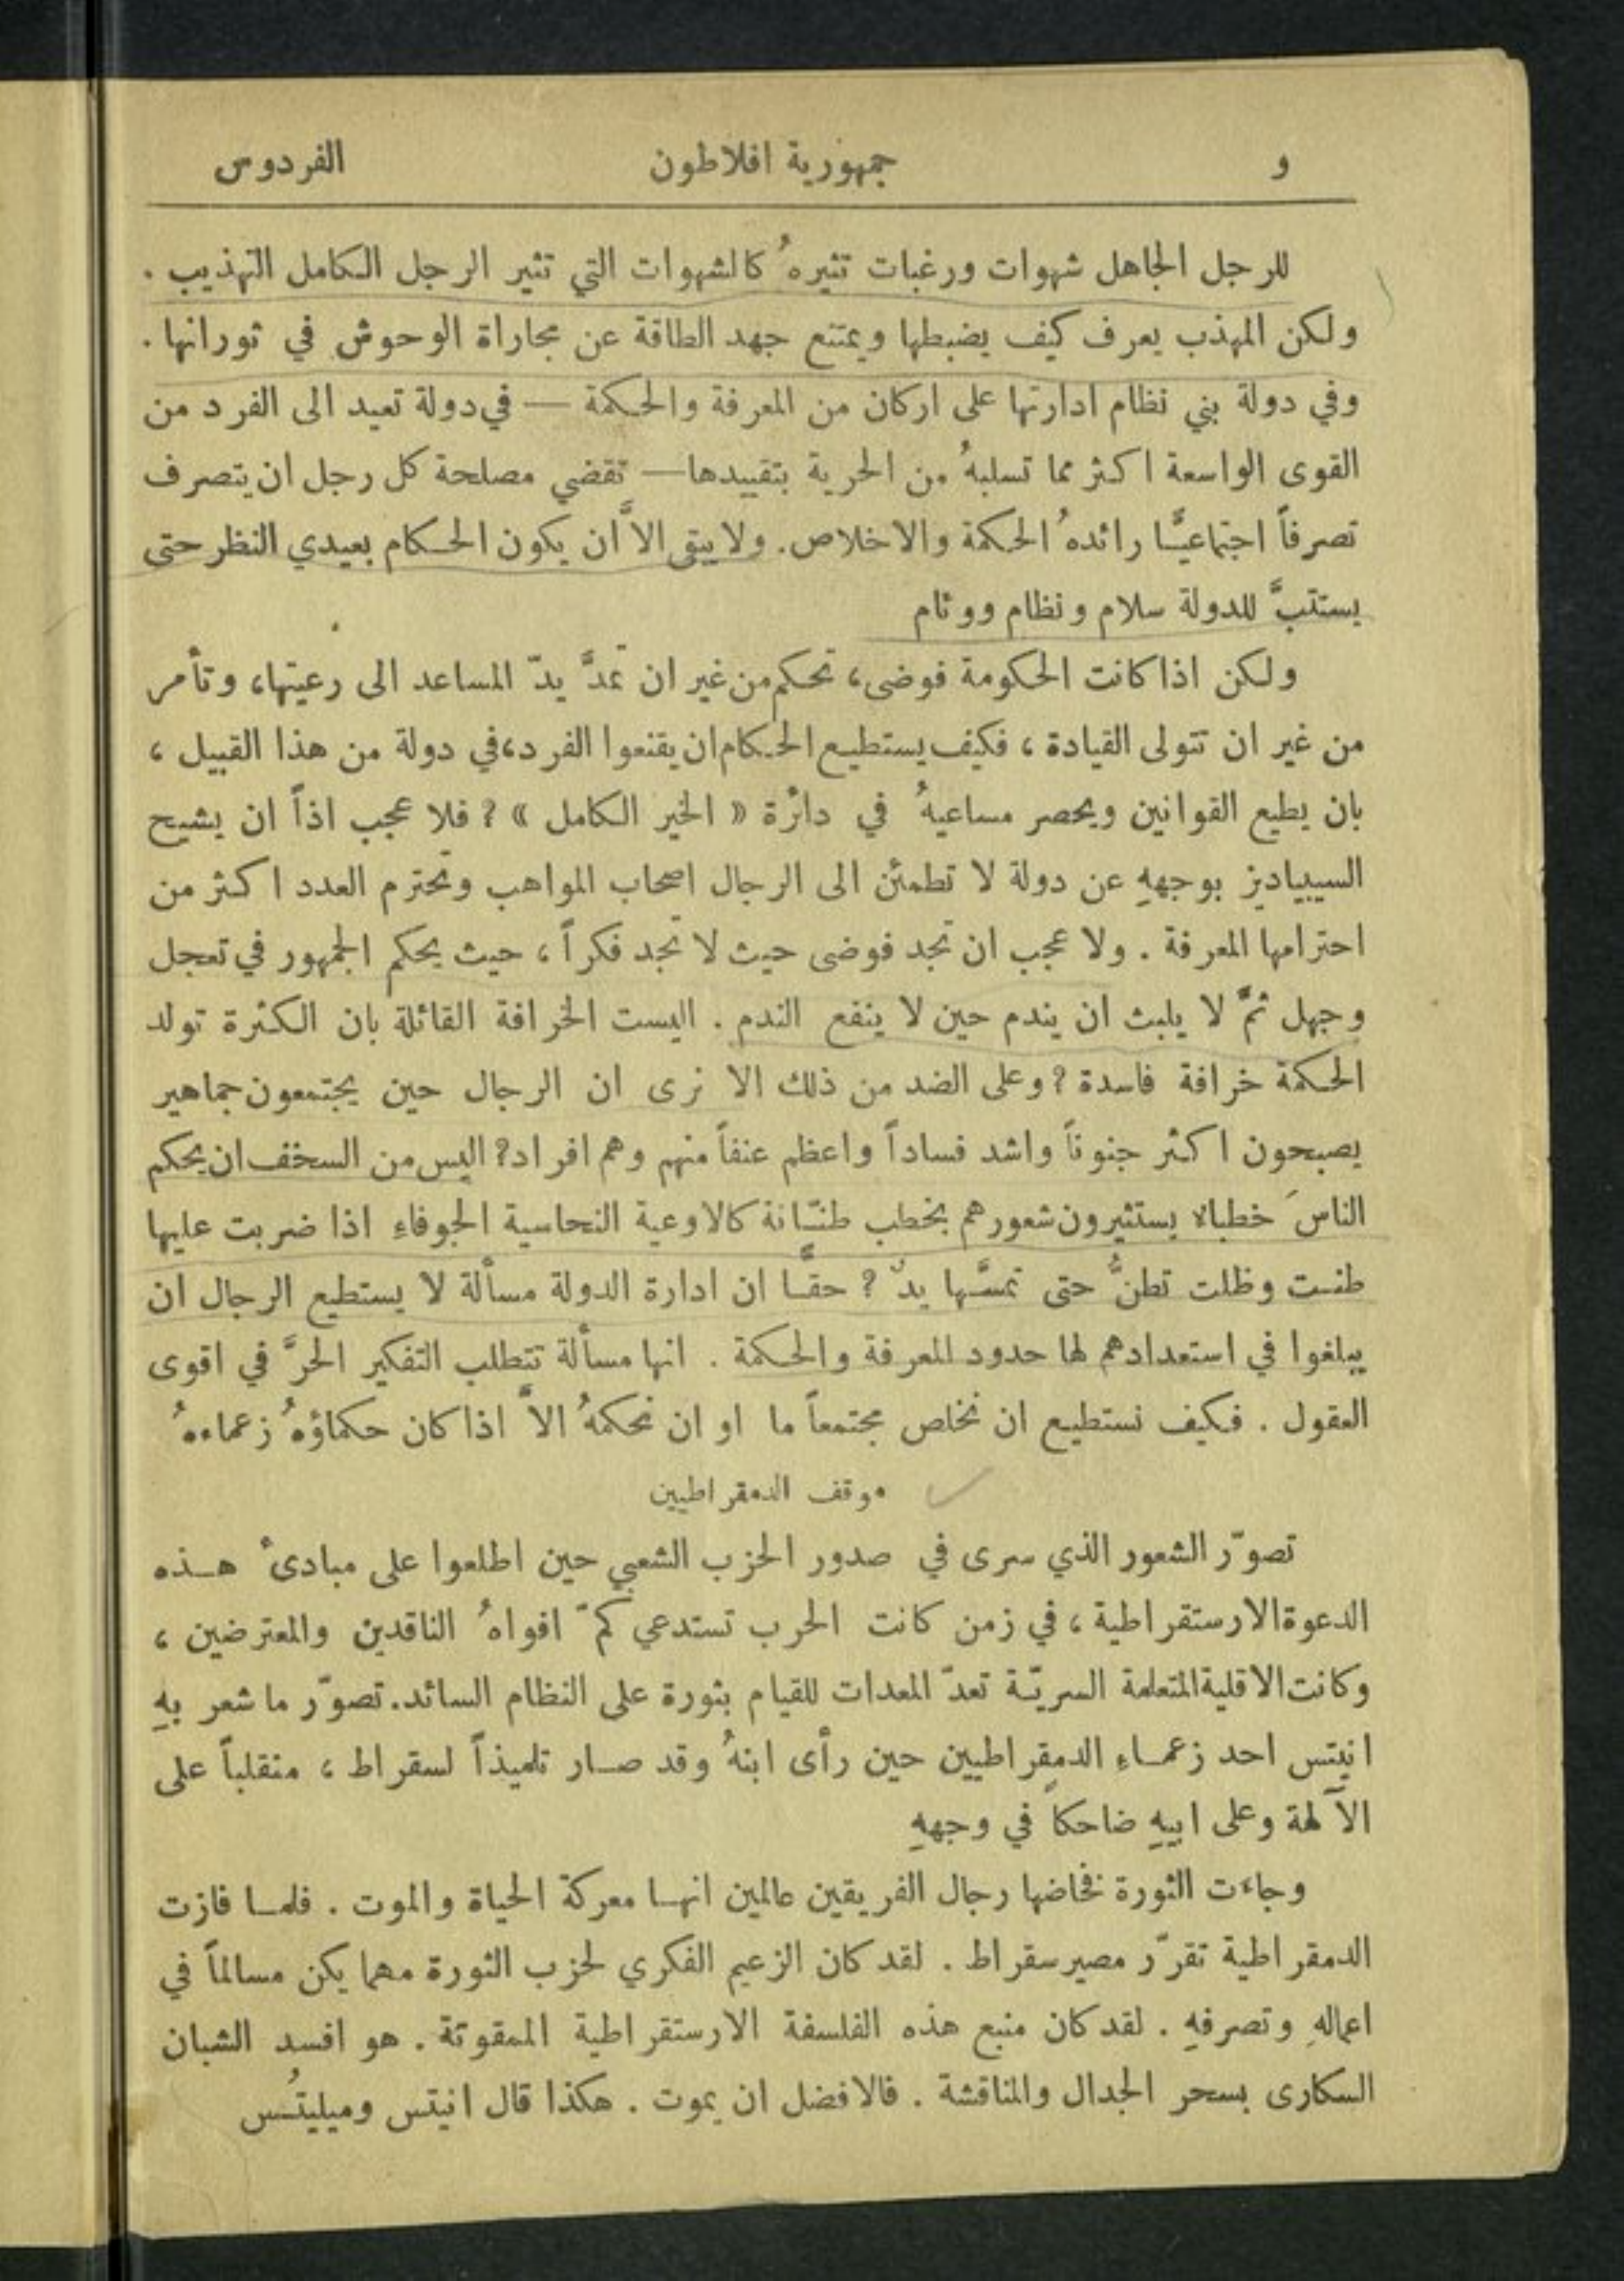 و جمهورية افلاطون الفردوس
للرجل الجاهل شهوات ورغبات تثيرهُ كالشهوات التي تثير الرجل الكامل التهذيب .
ولكن المهذب يعرف كيف يضبطها ويمتنع جهد الطاقة عن مجاراة الوحوش في ثورانها .
وفي دولة بني نظام ادارتها على اركان من المعرفة والحكمة — في دولة تعيد الى الفرد من
القوى الواسعة اكثر مما تسلبهُ من الحرية بتقييدها — تقضي مصلحة كل رجل ان يتصرف
تصرفاً اجتماعيًّا رائدهُ الحكمة والاخلاص . ولا يبقى الاَّ ان يكون الحكام بعيدي النظر حتى
يستتبَّ للدولة سلام ونظام ووئام
ولكن اذا كانت الحكومة فوضى ، تحكم من غير ان تمدَّ يدّ المساعد الى رعيتها ، وتأمر
من غير ان تتولى القيادة ، فكيف يستطيع الحكام ان يقنعوا الفرد ، في دولة من هذا القبيل ،
بان يطيع القوانين ويحصر مساعيهُ في دائرة « الخير الكامل » ؟ فلا عجب اذاً ان يشيح
السيبياديز بوجههِ عن دولة لا تطمئن الى الرجال اصحاب المواهب وتحترم العدد اكثر من
احترامها المعرفة . ولا عجب ان تجد فوضى حيث لا تجد فكراً ، حيث يحكم الجمهور في تعجل
وجهل ثمَّ لا يلبث ان يندم حين لا ينفع الندم . اليست الخرافة القائلة بان الكثرة تولد
الحكمة خرافة فاسدة ؟ وعلى الضد من ذلك الا نرى ان الرجال حين يجتمعون جماهير
يصبحون اكثر جنوناً واشد فساداً واعظم عنفاً منهم وهم افراد ؟ اليس من السخف ان يحكم
الناسَ خطباء يستثيرون شعورهم بخطب طنّانة كالاوعية النحاسية الجوفاءِ اذا ضربت عليها
طنت وظلت تطنُّ حتى تمسَّها يدٌ ؟ حقًّا ان ادارة الدولة مسألة لا يستطيع الرجال ان
يبلغوا في استعدادهم لها حدود المعرفة والحكمة . انها مسألة تتطلب التفكير الحرَّ في اقوى
العقول . فكيف نستطيع ان نخلص مجتمعاً ما او ان نحكمهُ الاَّ اذا كان حكماؤهُ زعماءهُ
موقف الدمقراطيين
تصوّر الشعور الذي سرى في صدور الحزب الشعبي حين اطلعوا على مبادئ هذه
الدعوة الارستقراطية ، في زمن كانت الحرب تستدعي كمّ افواهُ الناقدين والمعترضين ،
وكانت الاقلية المتعلمة السريّة تعدّ المعدات للقيام بثورة على النظام السائد . تصوّر ما شعر بهِ
انيتس احد زعماءِ الدمقراطيين حين رأى ابنهُ وقد صار تلميذاً لسقراط ، منقلباً على
الآلهة وعلى ابيهِ ضاحكاً في وجههِ
وجاءت الثورة فخاضها رجال الفريقين عالمين انها معركة الحياة والموت . فلما فازت
الدمقراطية تقرّر مصير سقراط . لقد كان الزعيم الفكري لحزب الثورة مهما يكن مسالماً في
اعمالهِ وتصرفهِ . لقد كان منبع هذه الفلسفة الارستقراطية الممقوتة . هو افسد الشبان
السكارى بسحر الجدال والمناقشة . فالافضل ان يموت . هكذا قال انيتس وميليتُس